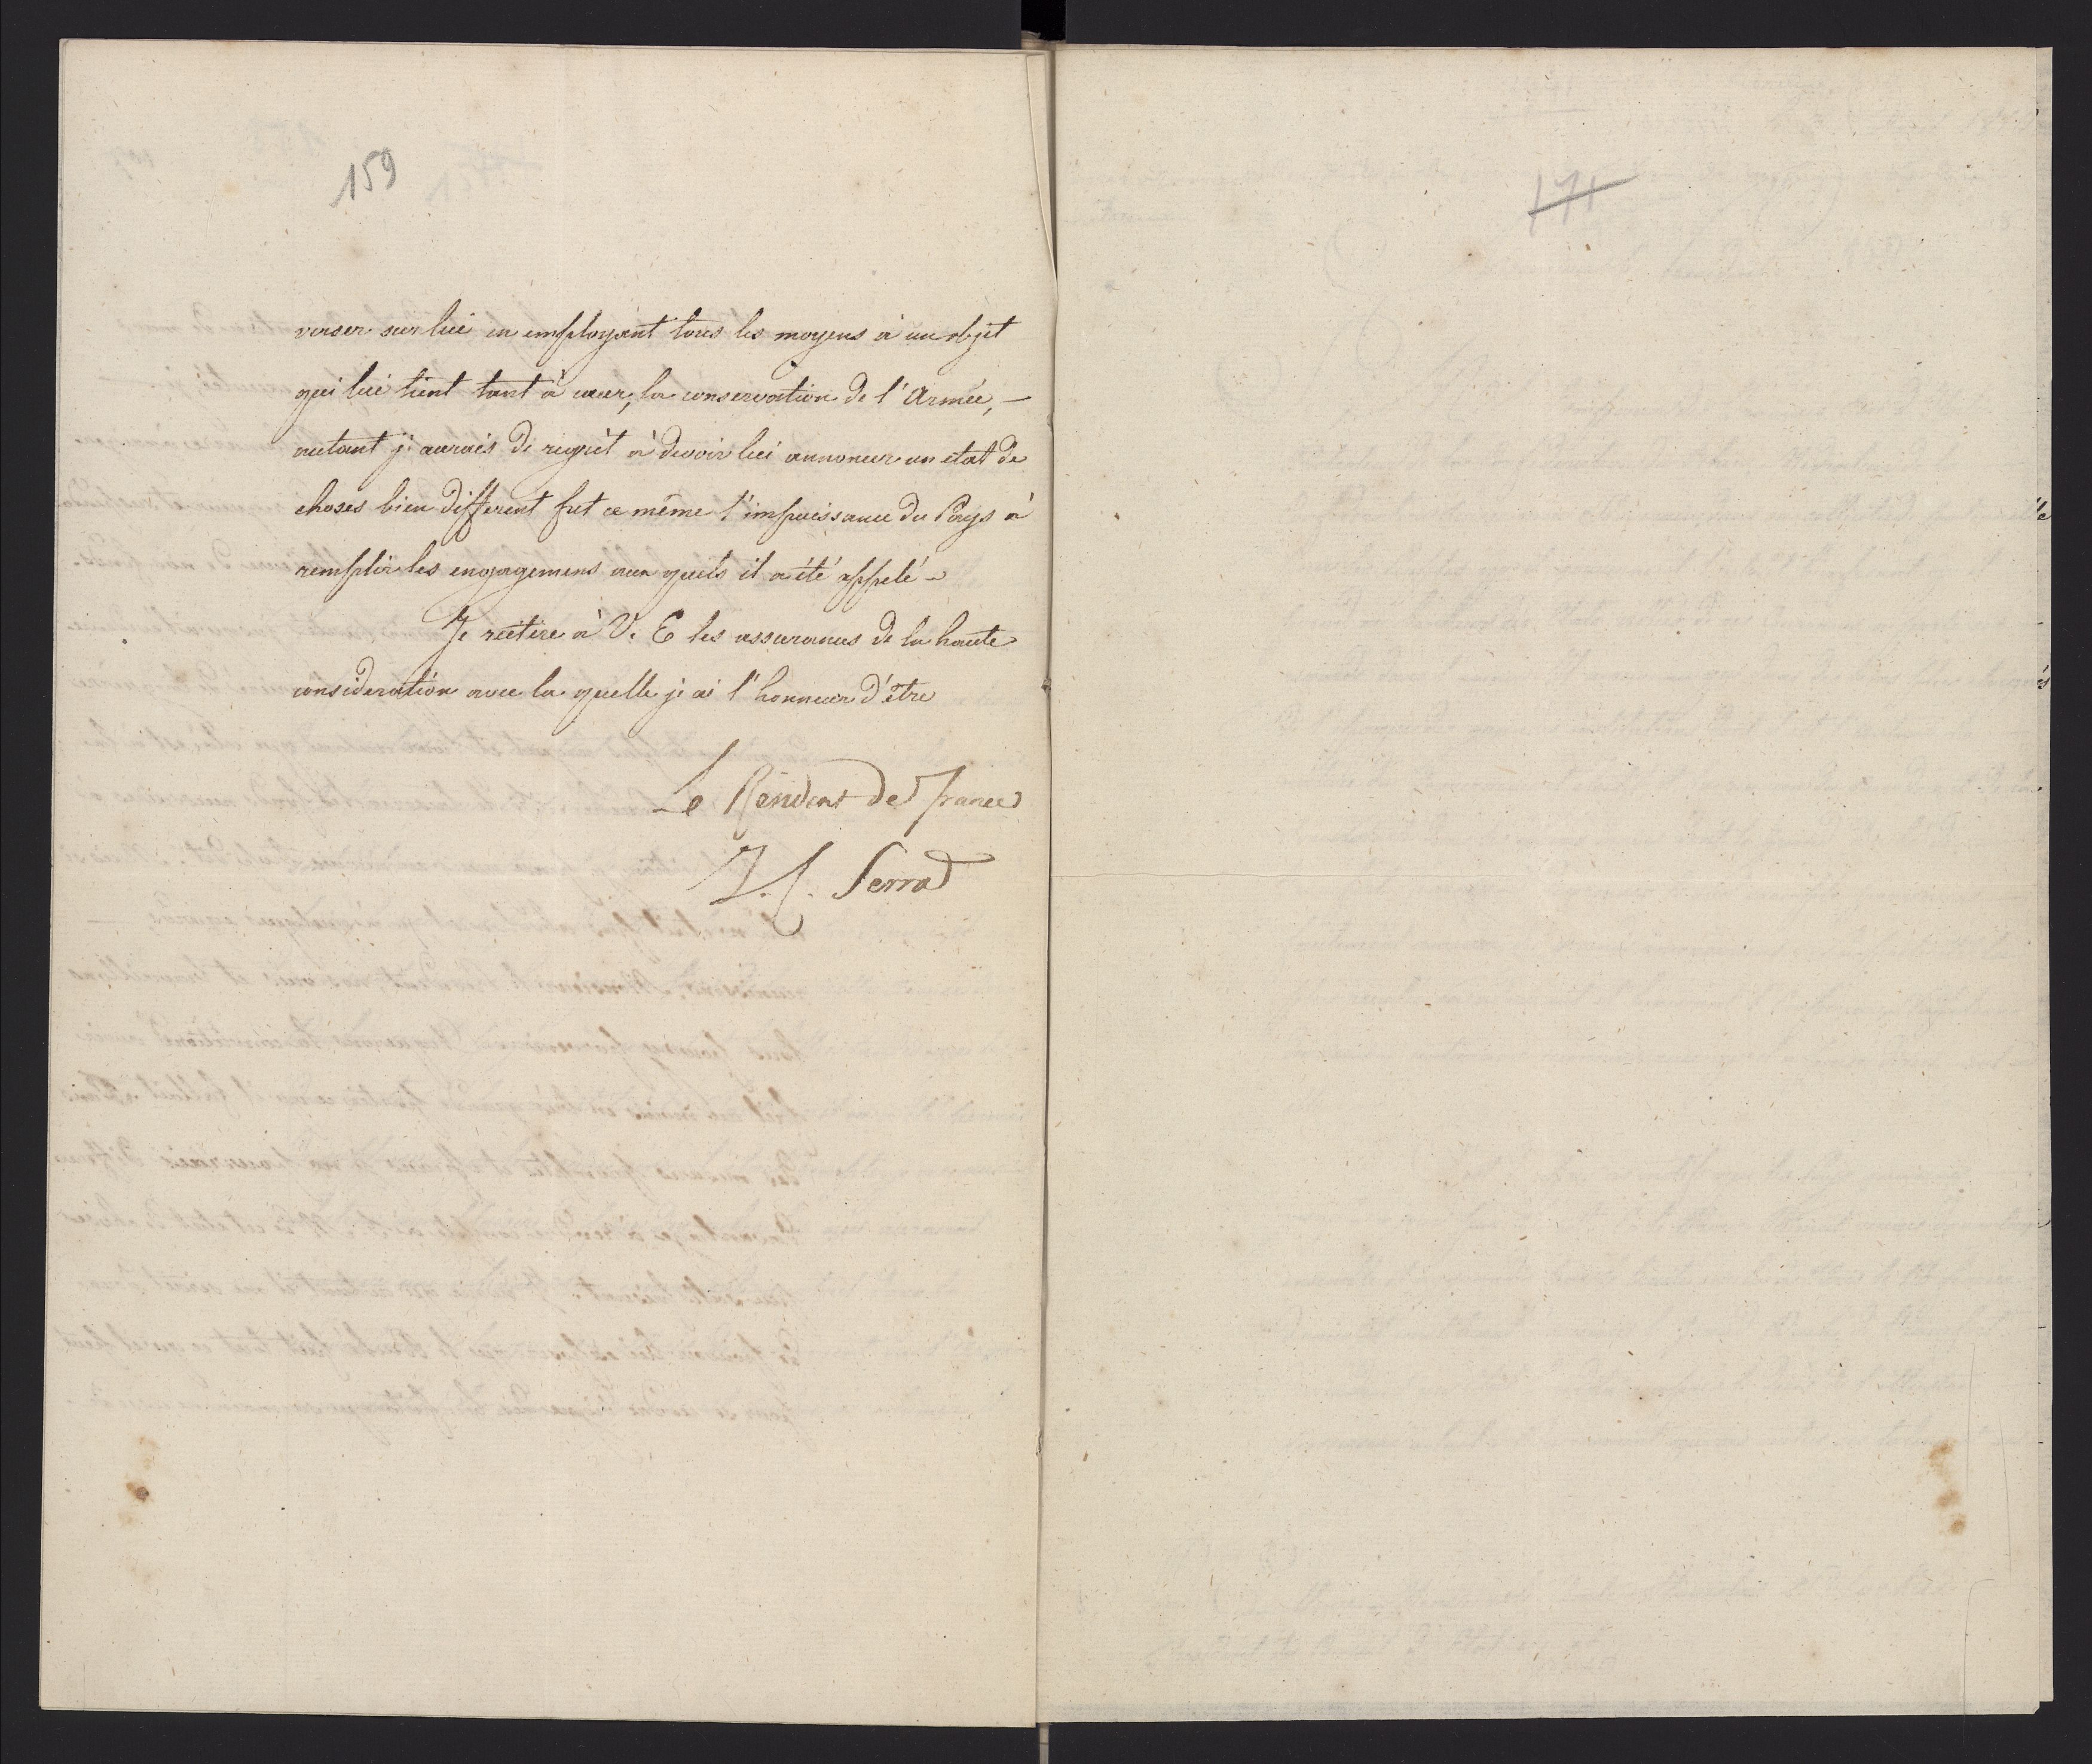 159
verser sur lui en employant tous les moyens à un objet
qui lui tient tant à cœur, la conservation de l'Armée, —
autant j'aurais de regrèt à devoir lui annoncer un etat de
choses bien different fut ce même l'impuissance du Pays à
remplir les engagemens aux quels il a été appelé -
Je reitere à V. E les assurances de la haute
consideration avec la quelle j'ai l'honneur d'être
Le Résident de France
J. C. Serra
171